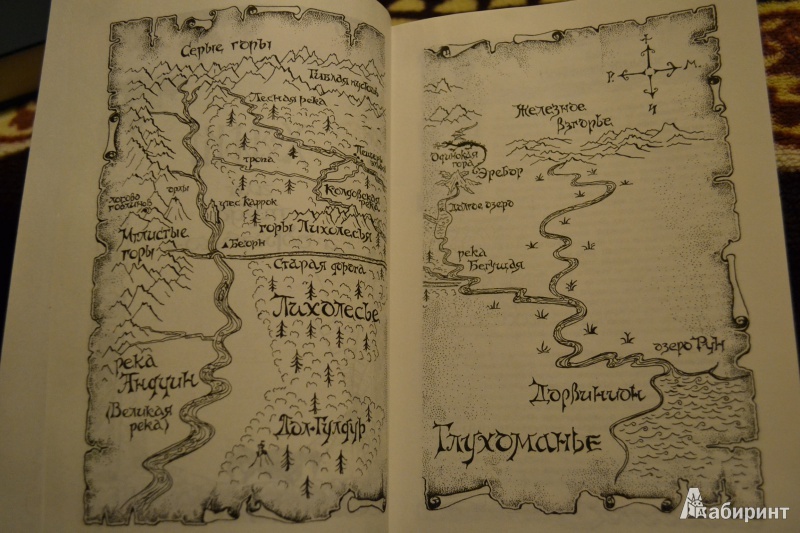 Серые горы
Гиблая пустошь
Лесная река
тропа
Колдовская
река
орлы
утес Каррок
горы Лихолесья
Мглистые
горы
Беорн
Старая дорога
Лихолесье
река
Андуин
(Великая
река)
Дол-Гулдур
Р.
М.
И
Железное
взгорье
Одинокая
гора
Эребор
Долгое озеро
река
Бегущая
озеро Рун
Дорвинион
Глухоманье
Лабиринт